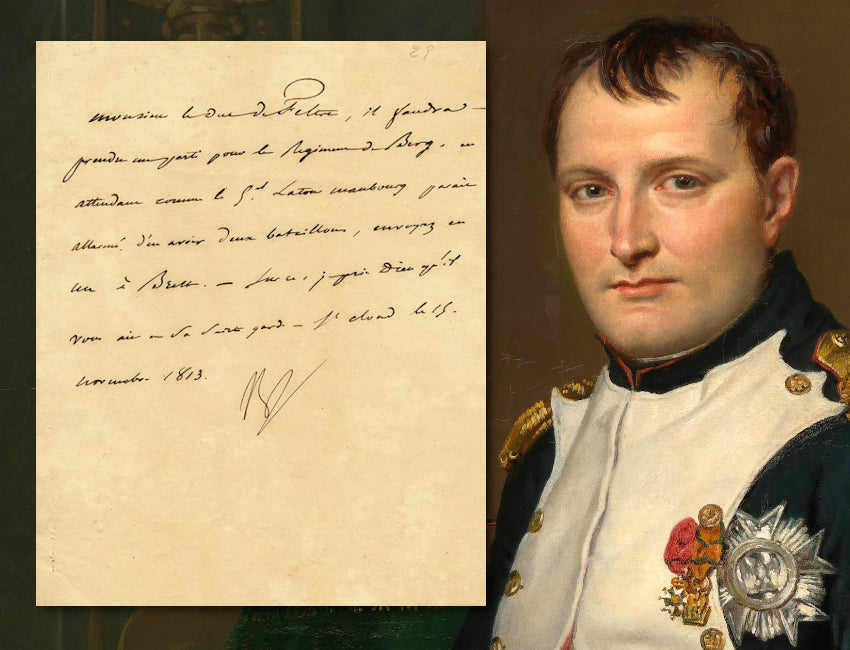 29
monsieur le duc de Feltre, il faudra
prendre un parti pour le Regiment de Berg. en
attendant comme le Gal Latour maubourg parait
allarmé d'en avoir deux bataillons, envoyez en
un à Brest. — sur ce, je prie Dieu qu'il
vous ait en sa sainte garde — St cloud le 15.
novembre 1813.